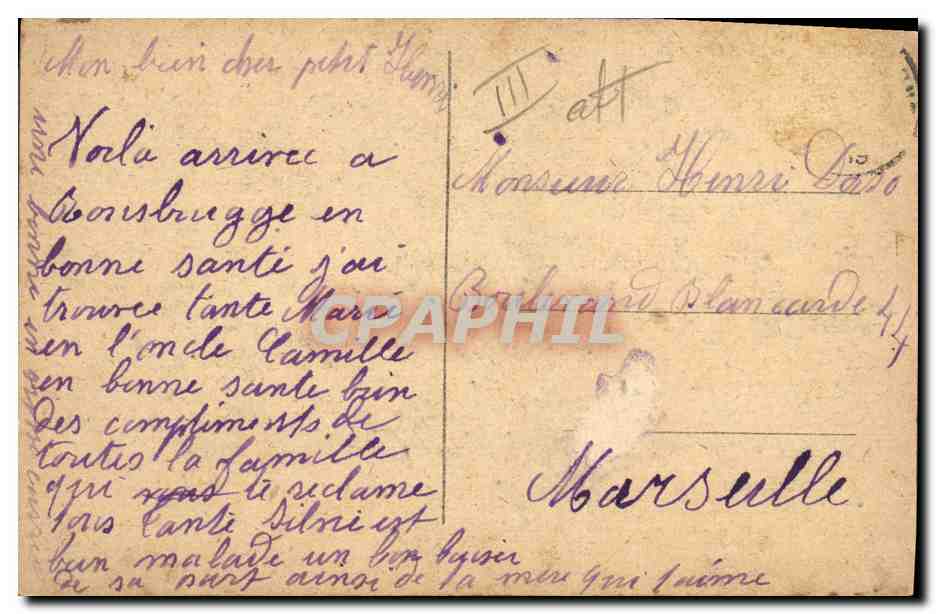 Mon bien cher petit Henri
Voila arrivee a
Rousbrugge en
bonne santé j'ai
trouvee tante Marie
en l'oncle Camille
en bonne sante bien
des compliments de
toutes la famille
qui vous te reclame
tous tante Silvie est
bien malade un bon baiser
de sa part ainsi de ta mere qui t'aime
III
Monsieur Henri
Boulevard Blancarde 44
Marseille
CPAPHIL